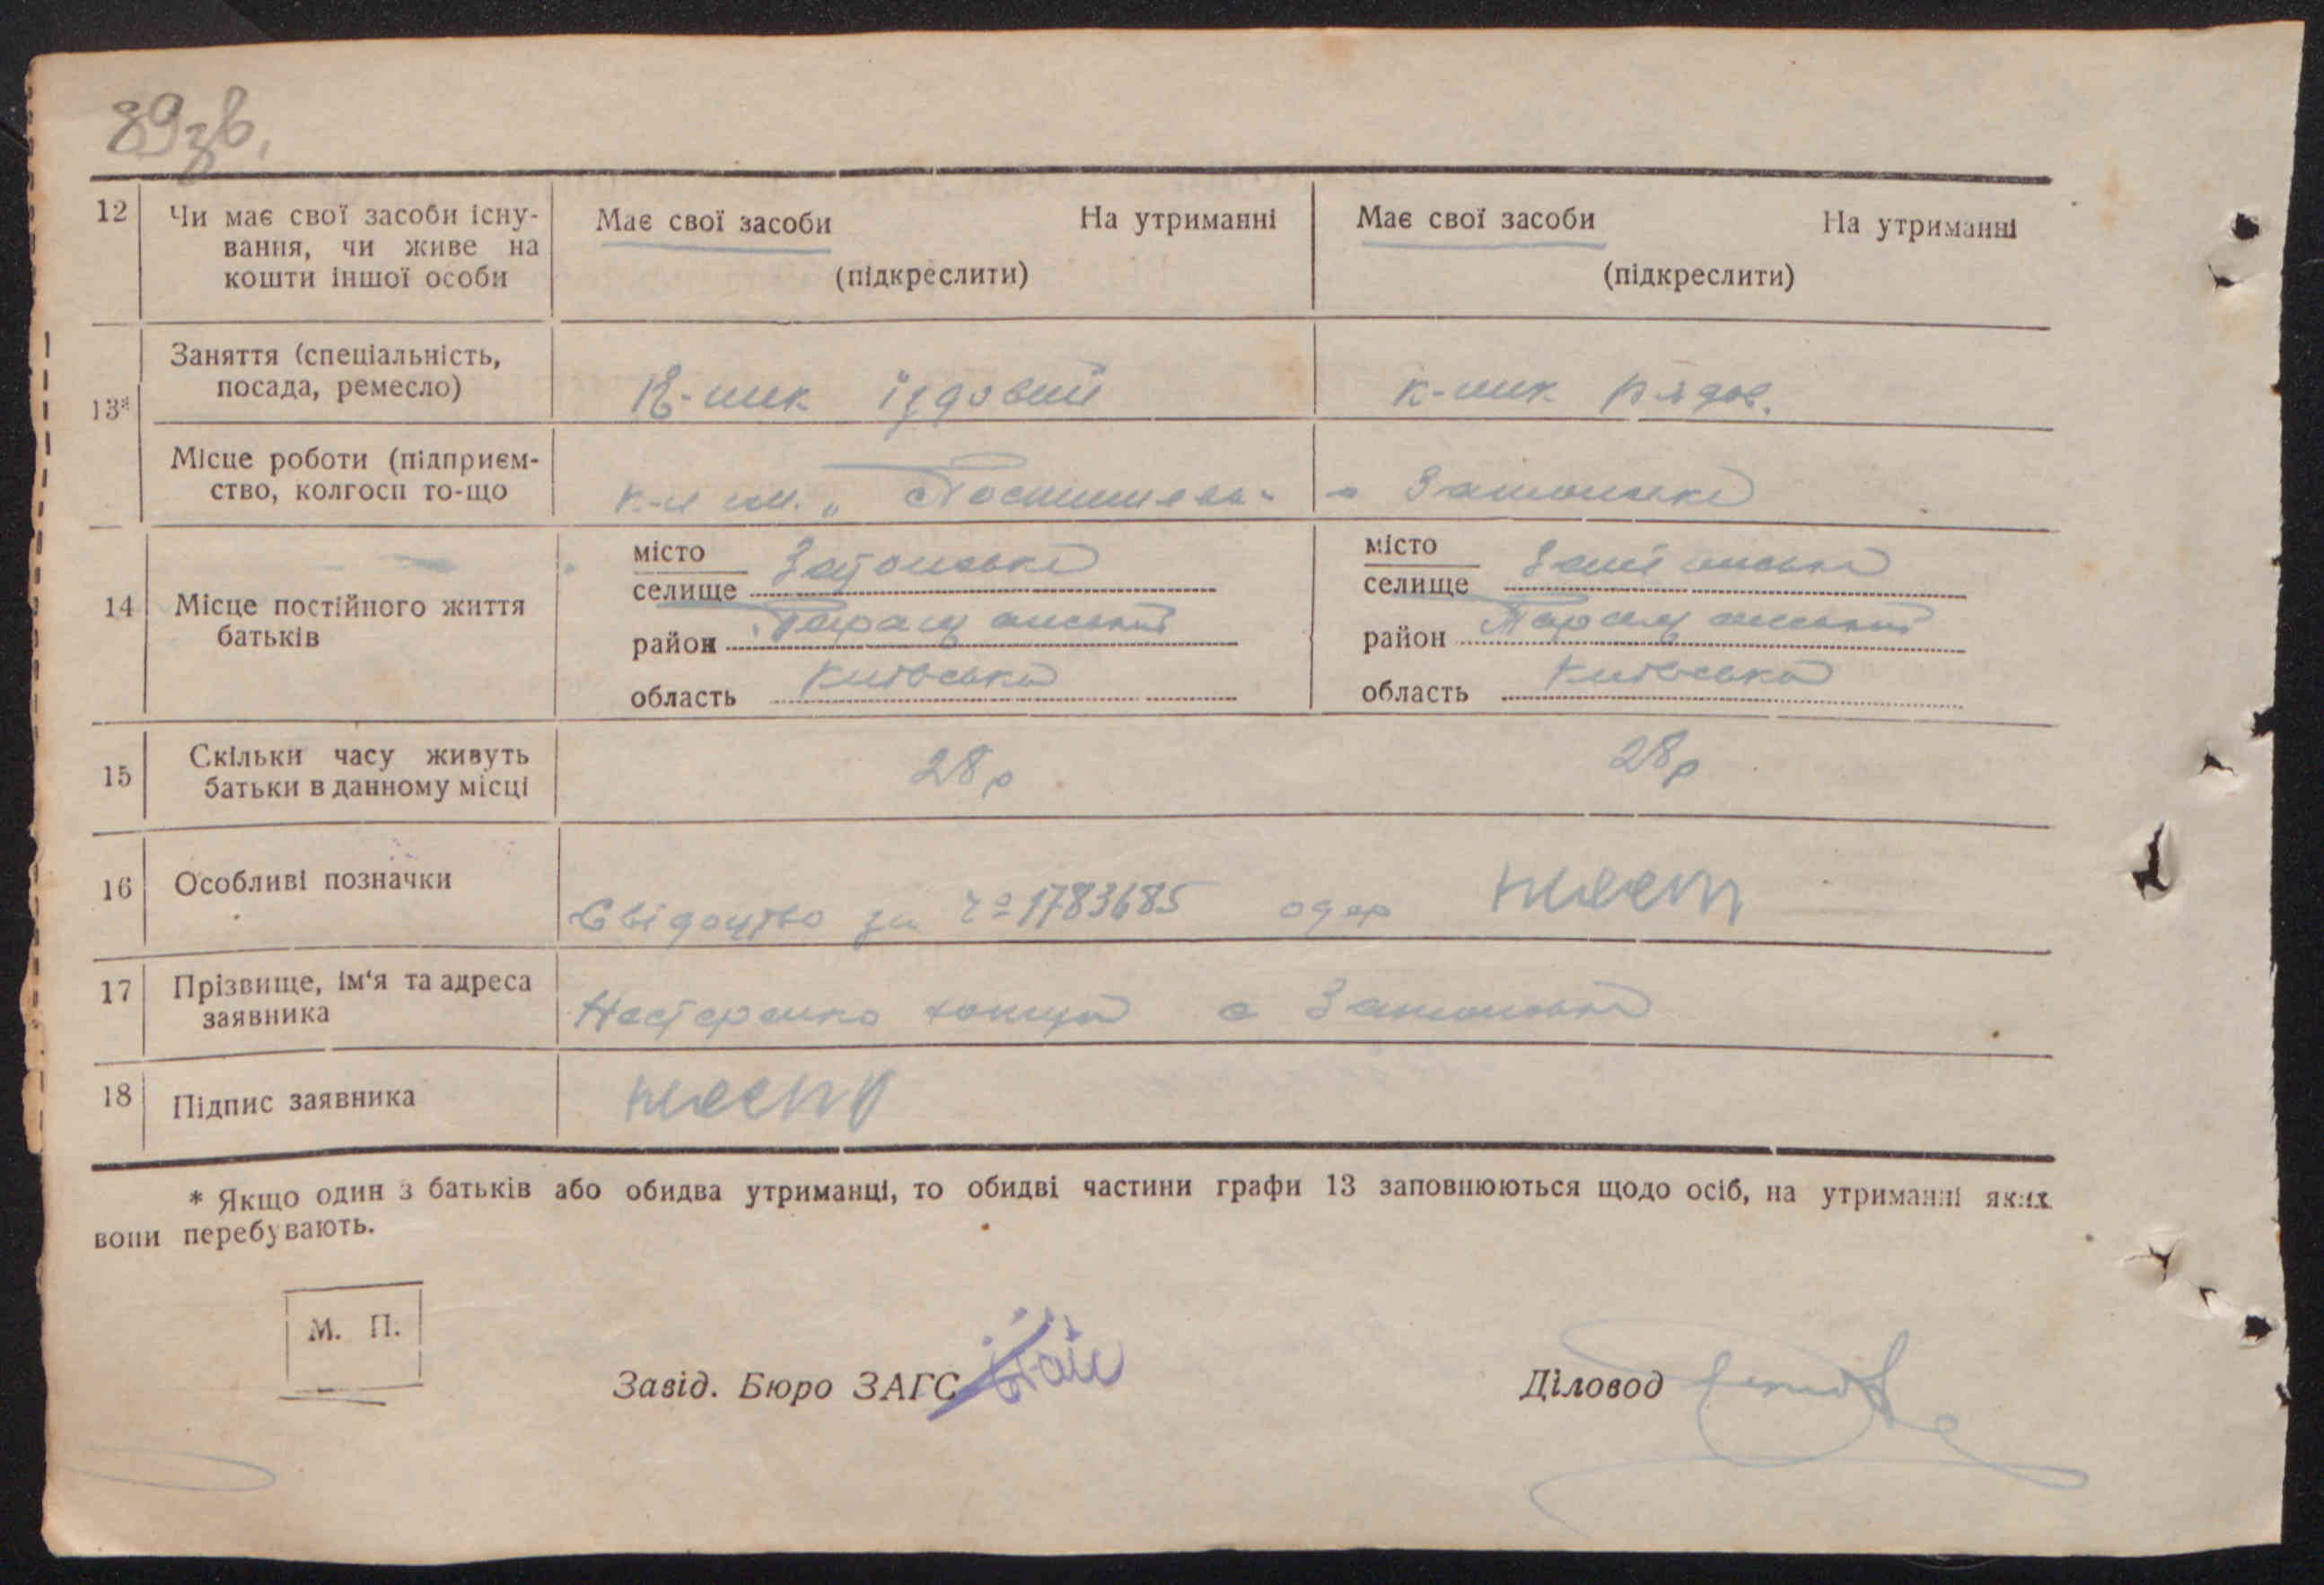 89зв.
12 Чи має свої засоби існу- Має свої засоби На утриманні Має свої засоби На утриманні
вання, чи живе на
кошти іншої особи (підкреслити) (підкреслити)
Заняття (спеціальність,
13* посада, ремесло) К-ник їздовий к-ник рядов.
Місце роботи (підприєм-
ство, колгосп то-що к-п ім. „Постишева“ с Затонське
місто Затонське місто
селище селище
14 Місце постійного життя район Таращанський район Таращанський
батьків
область Київська область Київська
15 Скільки часу живуть 28р 28р
батьки в данному місці
16 Особливі позначки
Свідоцтво за № 1783685 одер
17 Прізвище, ім‘я та адреса
заявника Нестеренко с
18 Підпис заявника
* Якщо один з батьків або обидва утриманці, то обидві частини графи 13 заповнюються щодо осіб, на утриманні яких
вони перебувають.
М. П.
Завід. Бюро ЗАГС Діловод